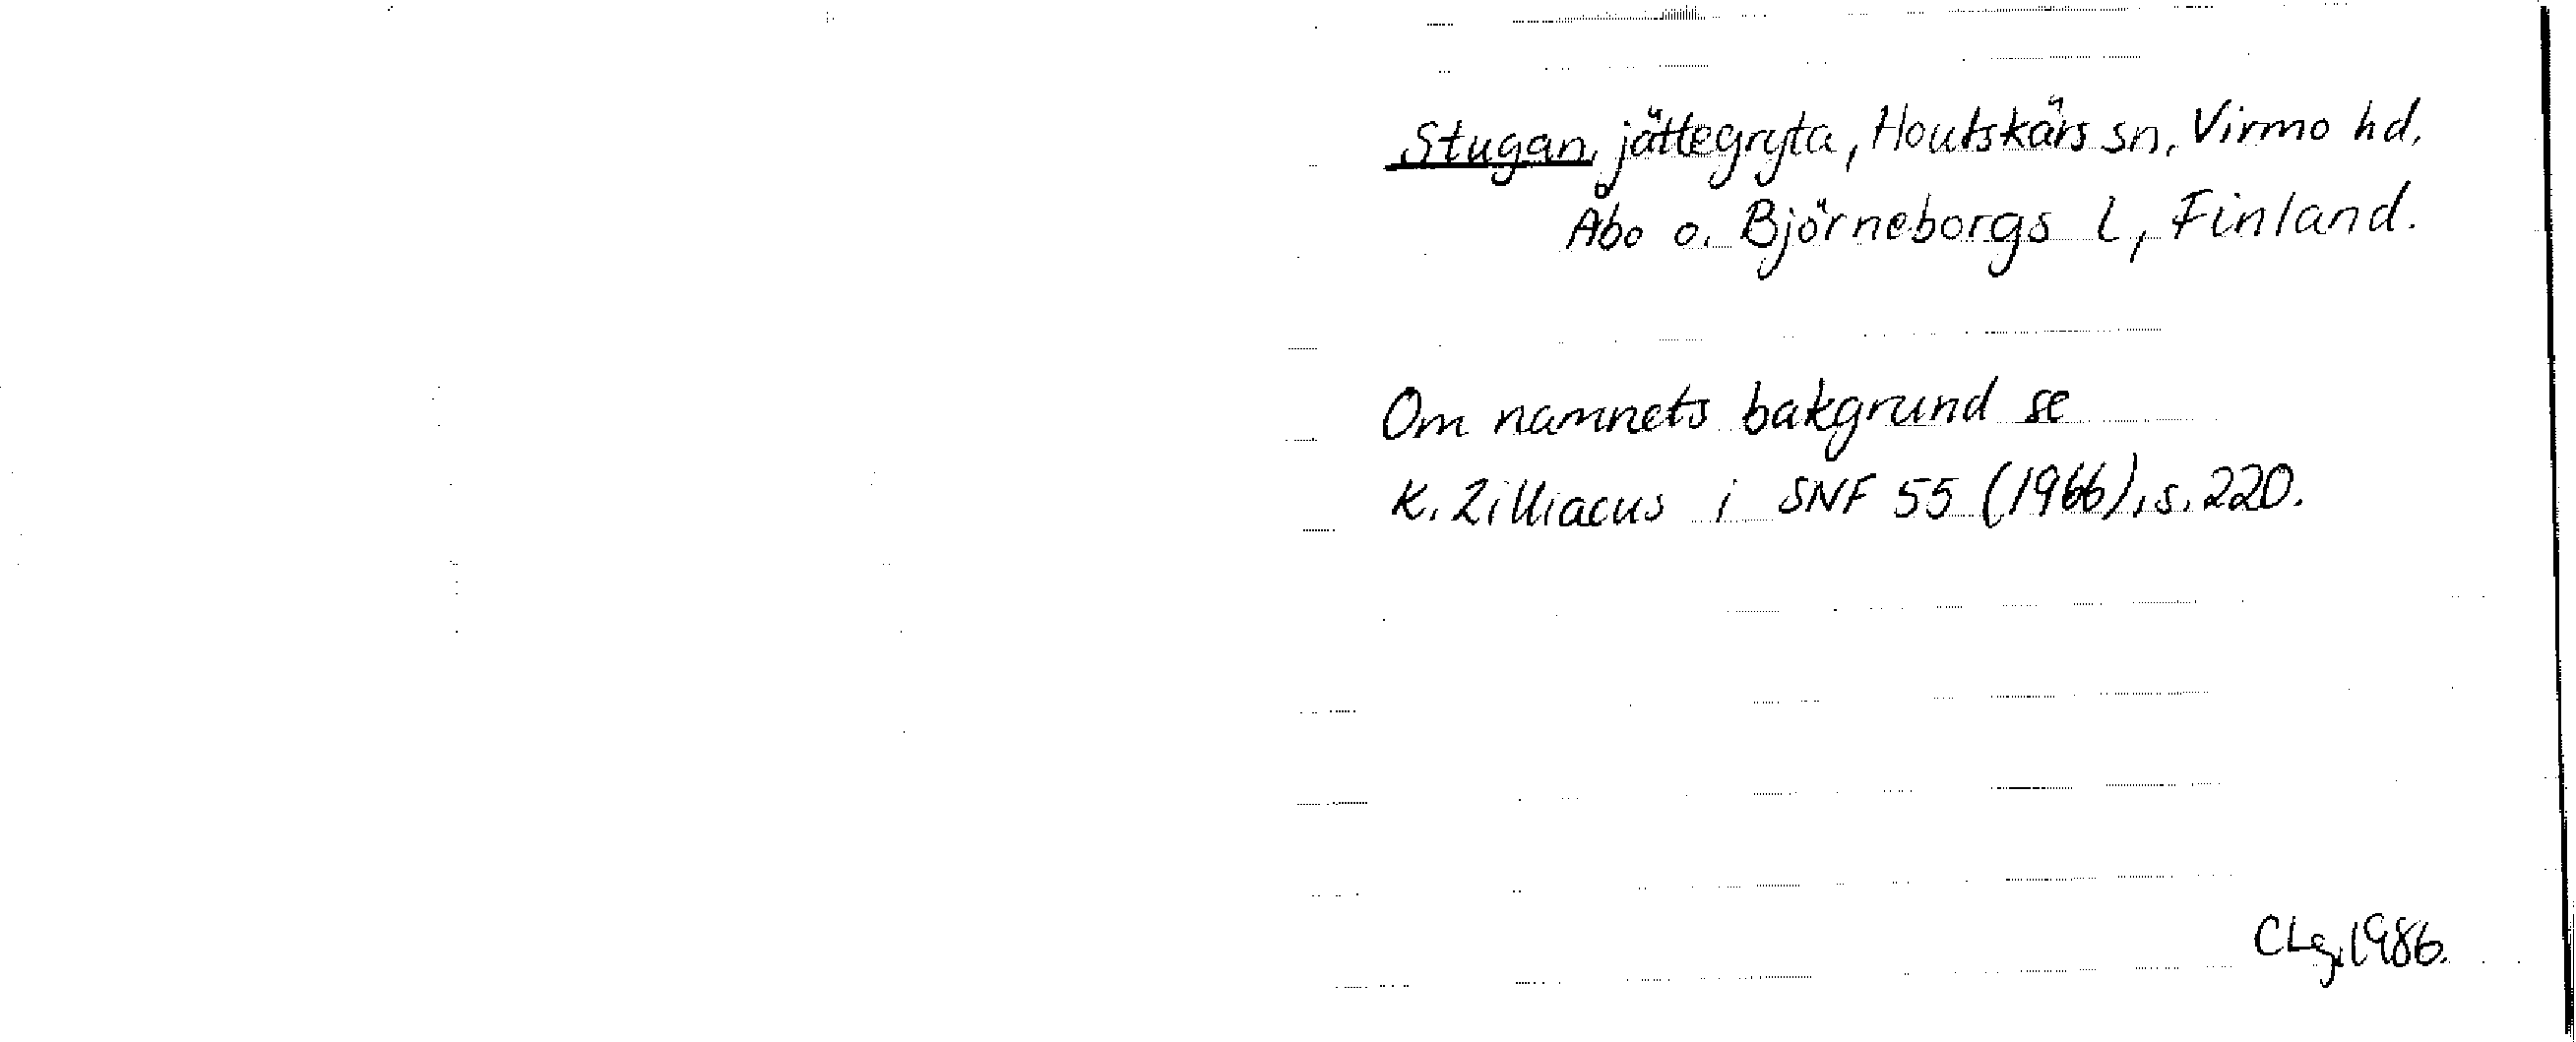 Stugan, jättegryta, Houtskärs sn, Virmo hd,
Åbo o. Björneborgs l, Finland.
Om namnets bakgrund se
K. Zilliacus i SNF 55 (1966), s. 220.
CLg. 1986.